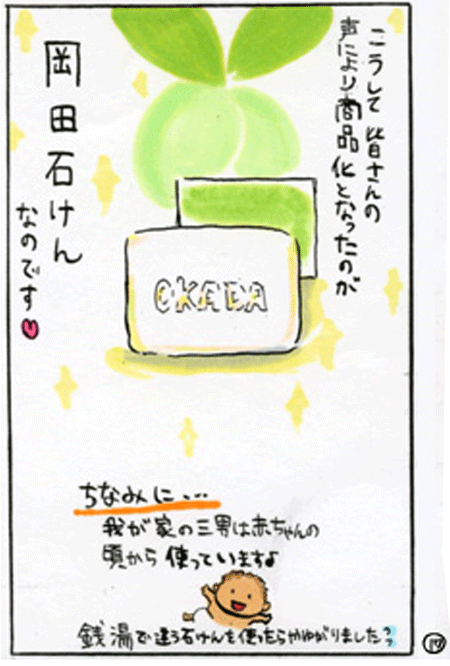 こうして皆さんの
声により商品化となったのが
岡田石けん
なのです
OKADA
ちなみに...
我が家の三男は赤ちゃんの
頃から使っています♪
銭湯で違う石けんを使ったらかゆがりました
17